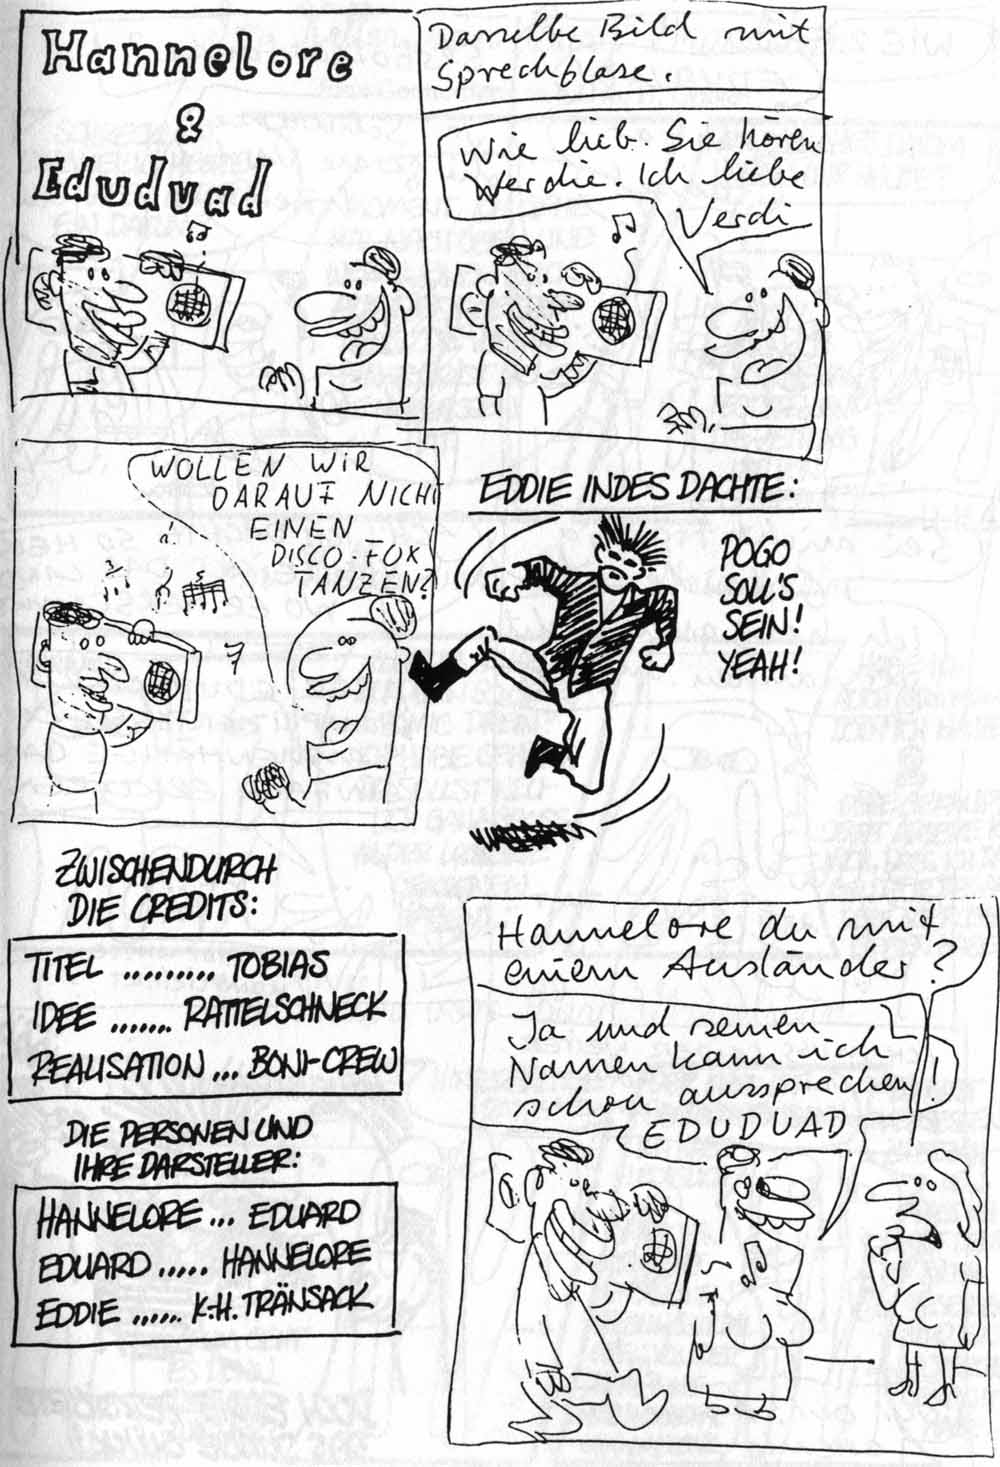 Hannelore
&
Eduduad
Dasselbe Bild mit
Sprechblase.
Wie lieb. Sie hören
Werdie. Ich liebe
Verdi
WOLLEN WIR
DARAUF NICHT
EINEN
DISCO-FOX
TANZEN?
EDDIE INDES DACHTE:
POGO
SOLL'S
SEIN!
YEAH!
ZWISCHENDURCH
DIE CREDITS:
TITEL ......... TOBIAS
IDEE ....... RATTELSCHNECK
REALISATION ... BONI-CREW
DIE PERSONEN UND
IHRE DARSTELLER:
HANNELORE ... EDUARD
EDUARD ..... HANNELORE
EDDIE ...... K.-H. TRÄNSACK
Hannelore du mit
einem Ausländer?
Ja und seinen
Namen kann ich
schon aussprechen
EDUDUAD
!